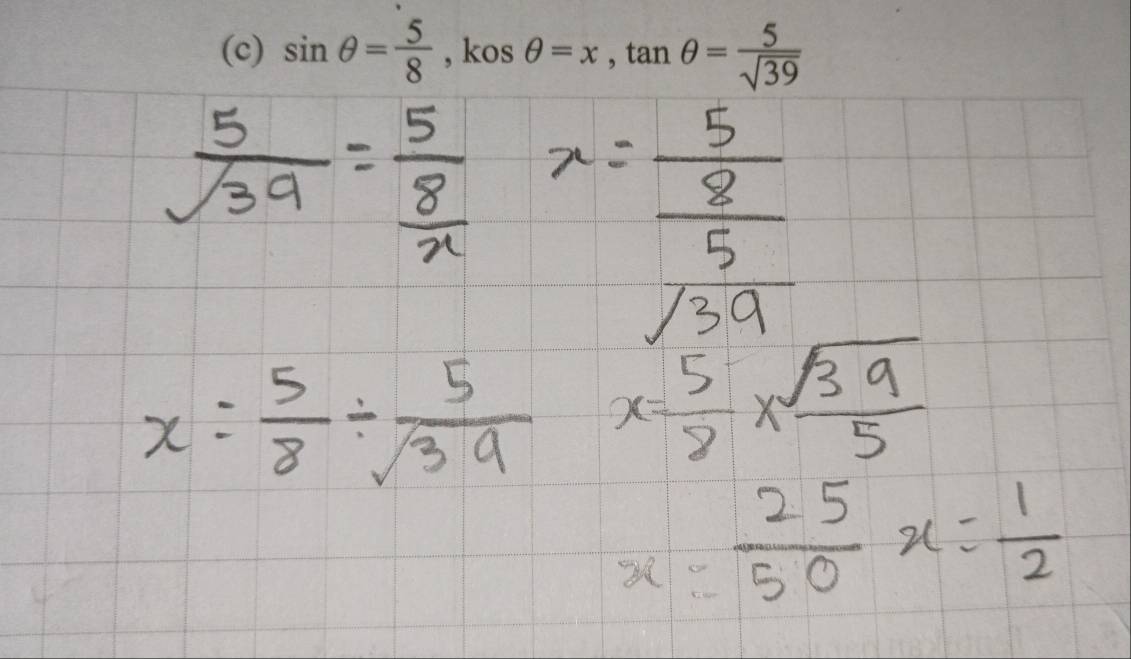 (c) sin θ = 5/8 , kos θ = x , tan θ = 5/√39
5/√39 = (5/8)/x x = (5/8)/(5/√39)
x = 5/8 ÷ 5/√39 x = 5/8 × √39/5
x = 25/50 x = 1/2